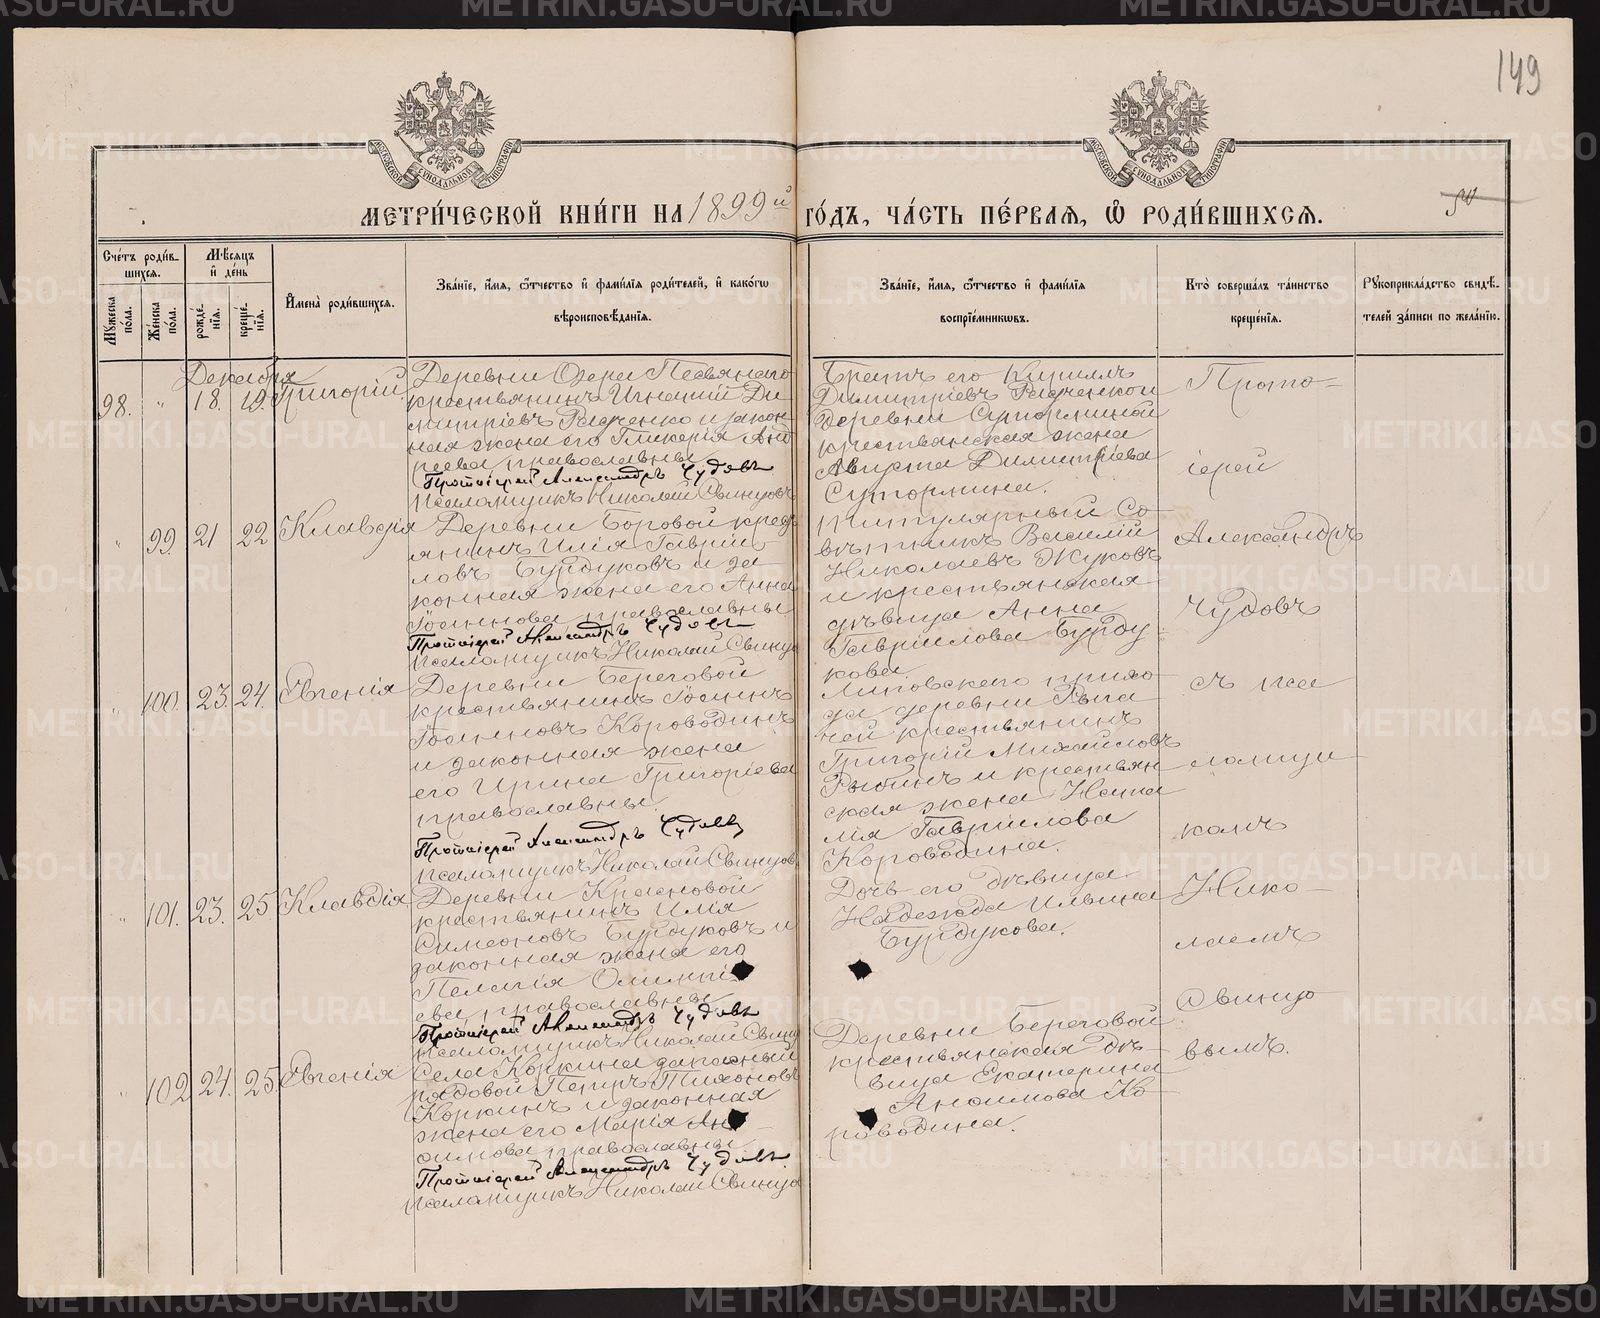 149
МЕТРИ́ЧЕСКОЙ КНИ́ГИ НА 1899й ГО́ДЪ, ЧА́СТЬ ПЕ́РВАѦ, Ѡ҆ РОДИ́ВШИХСѦ.
Сче́тъ роди́вшихсѧ.
Мꙋ́жеска по́ла.
Же́нска по́ла.
Мѣ́сѧцъ и҆ де́нь
рожде́нїѧ.
креще́нїѧ.
И҆мена̀ роди́вшихсѧ.
Зва́нїе, и҆́мѧ, ѻ҆́тчество и҆ фами́лїѧ роди́телей, и҆ како́гѡ
вѣроисповѣ́данїѧ.
Зва́нїе, и҆́мѧ, ѻ҆́тчество и҆ фами́лїѧ
воспрїе́мникѡвъ.
Кто̀ соверша́лъ та́инство
креще́нїѧ.
Рꙋкоприкла́дство свидѣ́-
телей за́писи по жела́нїю.
Декабря
98. " 18. 19. Григорій.
Деревни Озера Песьянаго
крестьянинъ Игнатій Ди
митріевъ Радченко и закон-
ная жена его Гликерія Анд
реева, православны
Протоіерей Александръ Чудовъ
Псаломщикъ Николай Свинцовъ
Братъ его Кириллъ
Димитріевъ Радченко и
деревни Сугорминой
крестьянская жена
Августа Димитріева
Сугормина.
" 99. 21 22 Клавдія
Деревни Боровой крес
янинъ Илія Гавріи
ловъ Бурдуковъ и за
конная жена его Анна
Іоаннова, православны
Протоіерей Александръ Чудовъ
Псаломщикъ Николай Свинцо
Титулярный Со-
вѣтникъ Василій
Николаевъ Жуковъ
и крестьянская
дѣвица Анна
Гавріилова Бурду-
кова.
" 100. 23. 24. Евгенія
Деревни Береговой
крестьянинъ Іоаннъ
Іоанновъ Короводинъ
и законная жена
его Ирина Григоріева
православны.
Протоіерей Александръ Чудовъ
Псаломщикъ Николай Свинцов
Липовскаго прихо-
да деревни
крестьянинъ
Григорій Михайловъ
Рыбинъ и крестьян
ская жена Ната
лія Гавріилова
Короводина.
" 101. 23. 25 Клавдія
Деревни Красновой
крестьянинъ Илія
Симеоновъ Бурдуковъ и
законная жена его
Пелагія Олимпі
ева, православны
Протоіерей Александръ Чудовъ
Псаломщикъ Николай Свинц
Дочь его дѣвица
Надежда Ильина
Бурдукова.
" 102 24. 25. Евгенія
Села Коркина запасный
рядовой Петръ Тихоновъ
Коркинъ и законная
жена его Марія Ан-
симова православны
Протоіерей Александръ Чудовъ
Псаломщикъ Николай Свинцо
Деревни Береговой
крестьянская дѣ-
вица Екатерина
Аносимова Ко-
роводина.
Прото-
іерей
Александръ
Чудовъ
съ пса
ломщи
комъ
Нико-
лаемъ
Свинцо
вымъ.